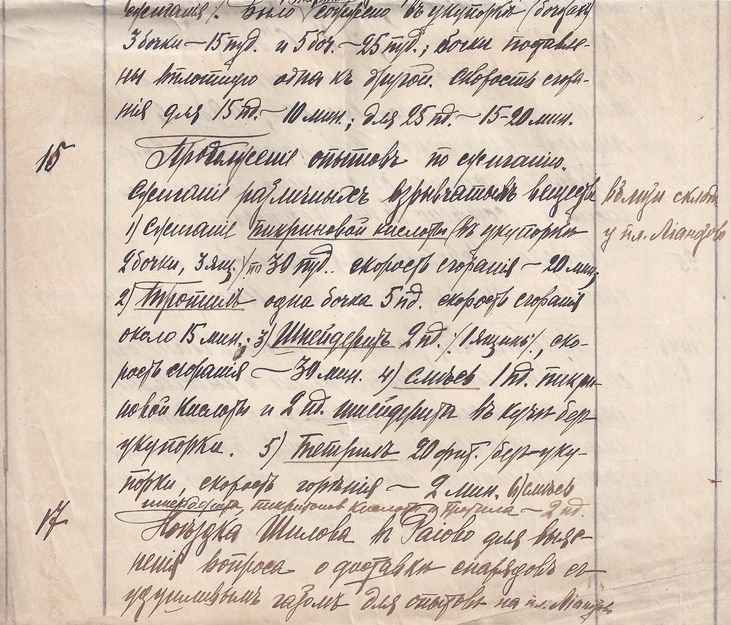 сжиганія). Было сожжено въ укупоркѣ (бочки)
3 бочки – 15 пуд. и 5 боч. – 25 пуд.; бочки поставле-
ны вплотную одна къ другой. Скорость сгора-
нія для 15 пд. – 10 мин.; для 25 пд. – 15-20 мин.
15 Продолженіе опытовъ по сжиганію.
Сжиганіе различныхъ взрывчатыхъ веществъ вблизи склада
1) Сжиганіе пикриновой кислоты (въ укупоркѣ у пл. Ліанозово
2 бочки, 3 ящ.) по 30 пуд. скорость сгоранія – 20 мин;
2) Тротилъ одна бочка 5 пд. скорость сгоранія
около 15 мин.; 3) Шнейдеритъ 2 пд. (1 ящикъ), ско-
рость сгоранія – 30 мин. 4) смѣсь 1 пд. пикри-
новой кислоты и 2 пд. шнейдерита въ кучѣ безъ
укупорки. 5) Тетрилъ 20 фнт. (безъ уку-
порки, скорость горѣнія – 2 мин. 6) смѣсь
шнейдерита, пикриновой кислоты и тротила – 2 пд.
17 Поѣздка Шилова въ для выяс-
ненія вопроса о доставкѣ снарядовъ съ
удушливымъ газомъ для опытовъ на пл. Ліанозово